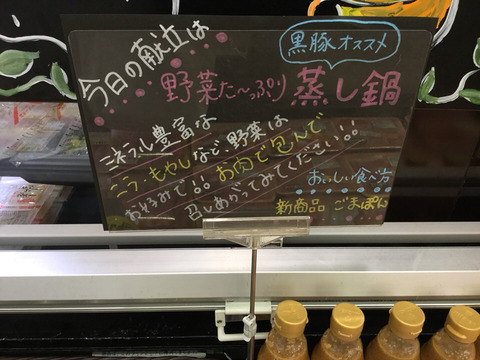 今日の献立は
黒豚オススメ
野菜た〜っぷり蒸し鍋
ミネラル豊富な
ニラ・もやしなど野菜は
お好みで!!お肉で包んで
召しあがってみてください!!
おいしい食べ方
新商品 ごまぽん